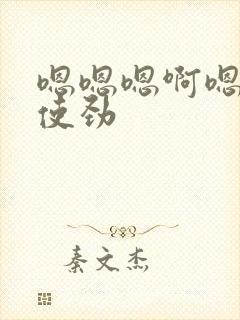 嗯嗯嗯啊嗯
使劲
秦文杰